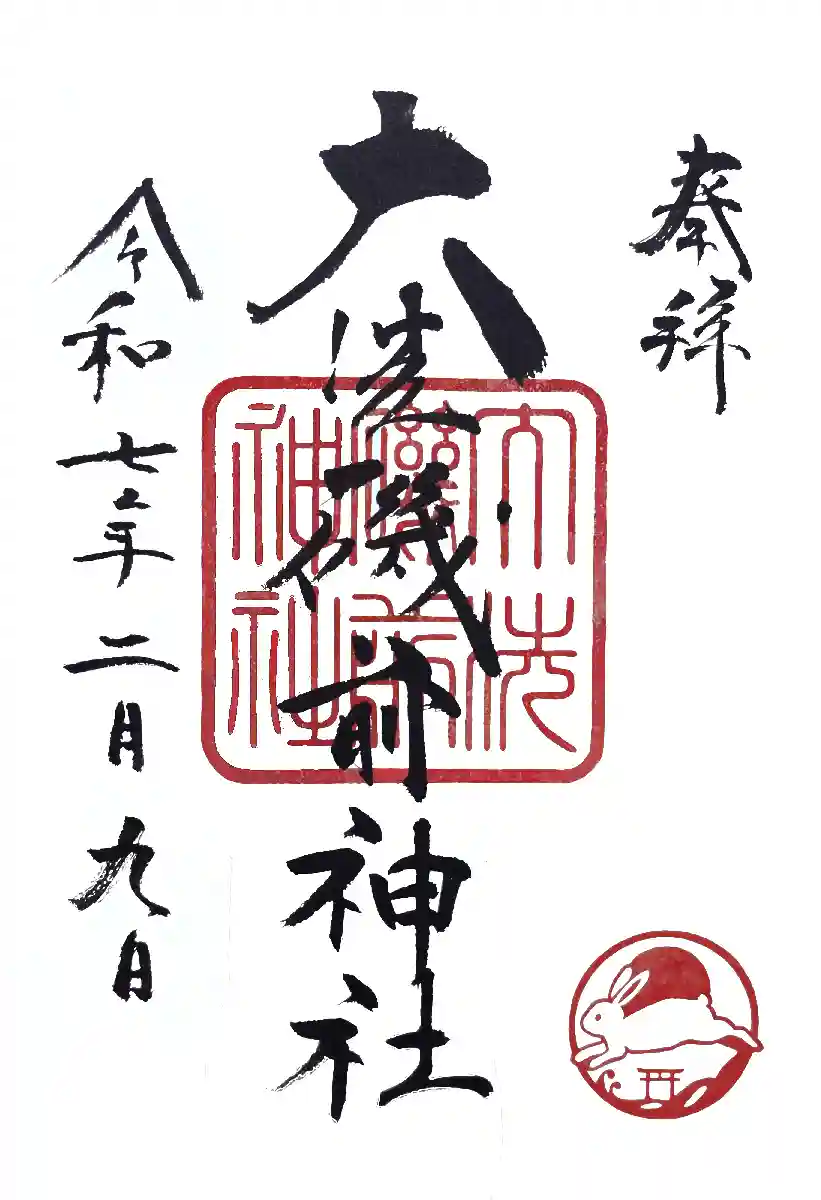 奉拝
大洗磯前神社
令和七年二月九日
大洗
磯前
神社